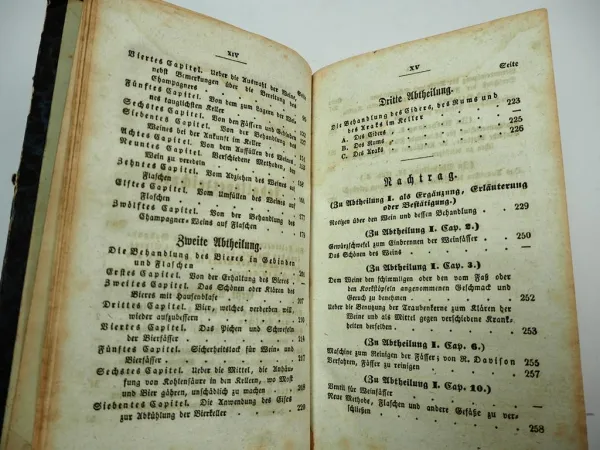 XIV
Seite
Viertes Capitel. Ueber die Auswahl der Weine,
nebst Bemerkungen über die Bereitung des
Champagners
Fünftes Capitel. Von dem zum Lagern der Weine
tauglichsten Keller
Sechstes Capitel. Von den Fässern und Gebinden
Siebentes Capitel. Von der Behandlung des
Weines bei der Ankunft im Keller
Achtes Capitel. Von dem Auffüllen des Weines
Neuntes Capitel. Verschiedene Methoden, den
Wein zu veredeln
Zehntes Capitel. Vom Abziehen des Weines auf
Flaschen
Elftes Capitel. Vom Umfüllen des Weines auf
Flaschen
Zwölftes Capitel. Von der Behandlung des
Champagner-Weines auf Flaschen
Zweite Abtheilung.
Die Behandlung des Bieres in Gebinden
und Flaschen
Erstes Capitel. Von der Erhaltung des Bieres
Zweites Capitel. Das Schönen oder Klären des
Bieres mit Hausenblase 207
Drittes Capitel. Bier, welches verdorben will,
wieder aufzubessern
Viertes Capitel. Das Pichen und Schwefeln
der Bierfässer
Fünftes Capitel. Sicherheitslack für Wein- und
Bierfässer
Sechstes Capitel. Ueber die Mittel, die Anhäu-
fung von Kohlensäure in den Kellern, wo Most
und Bier gähren, unschädlich zu machen
Siebentes Capitel. Die Anwendung des Eises
zur Abkühlung der Bierkeller 220
XV
Seite
Dritte Abtheilung.
Die Behandlung des Ciders, des Rums und
des Araks im Keller 223
A. Des Ciders —
B. Des Rums 225
C. Des Araks 226
Nachtrag.
(Zu Abtheilung I. als Ergänzung, Erläuterung
oder Bestätigung.)
Notizen über den Wein und dessen Behandlung 229
(Zu Abtheilung I. Cap. 2.)
Gewürzschwefel zum Einbrennen der Weinfässer 250
Das Schönen des Weins —
(Zu Abtheilung I. Cap. 3.)
Dem Weine den schimmligen oder den vom Faß oder
den Korkstöpseln angenommenen Geschmack und
Geruch zu benehmen 252
Ueber die Benutzung der Traubenkerne zum Klären der
Weine und als Mittel gegen verschiedene Krank-
heiten derselben 253
(Zu Abtheilung I. Cap. 6.)
Maschine zum Reinigen der Fässer; von R. Davison 255
Verfahren, Fässer zu reinigen 257
(Zu Abtheilung I. Cap. 10.)
Ventil für Weinfässer —
Neue Methode, Flaschen und andere Gefäße zu ver-
schließen 258